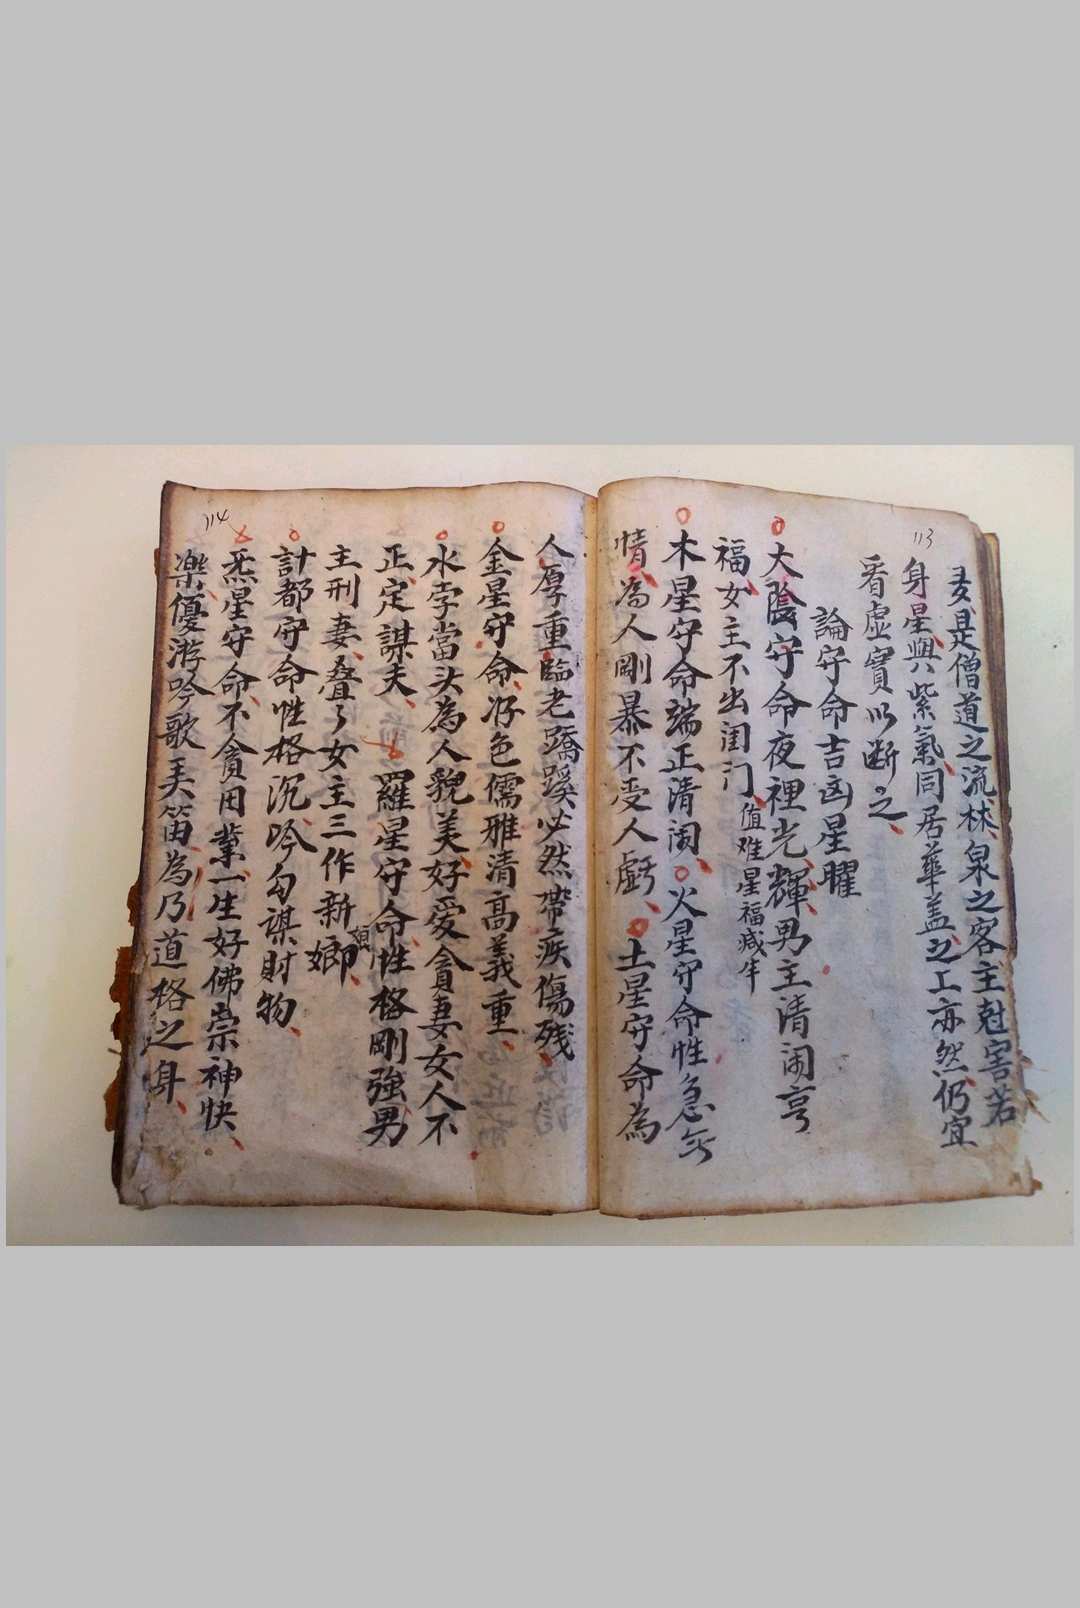 113
是僧道之流林泉之客主尅害若
身星與紫氣同居華盖之工亦然仍宜
看虛實以断之
論守命吉凶星曜
太陰守命夜裡光輝男主清閑亨
福女主不出闺门值难星福减半
木星守命端正清闲火星守命性急无
情為人剛暴不受人虧土星守命為
人厚重臨老蹻蹊必然帶疾傷残
金星守命浮色儒雅清高義重
水孛當头為人貌美好爱貪妻女人不
正定謀夫羅星守命性格剛強男
主刑妻叠々女主三作新娘
計都守命性格沉吟勾謀財物
炁星守命不貪田業一生好佛崇神快
樂優游吟歌美笛為乃道格之身
114